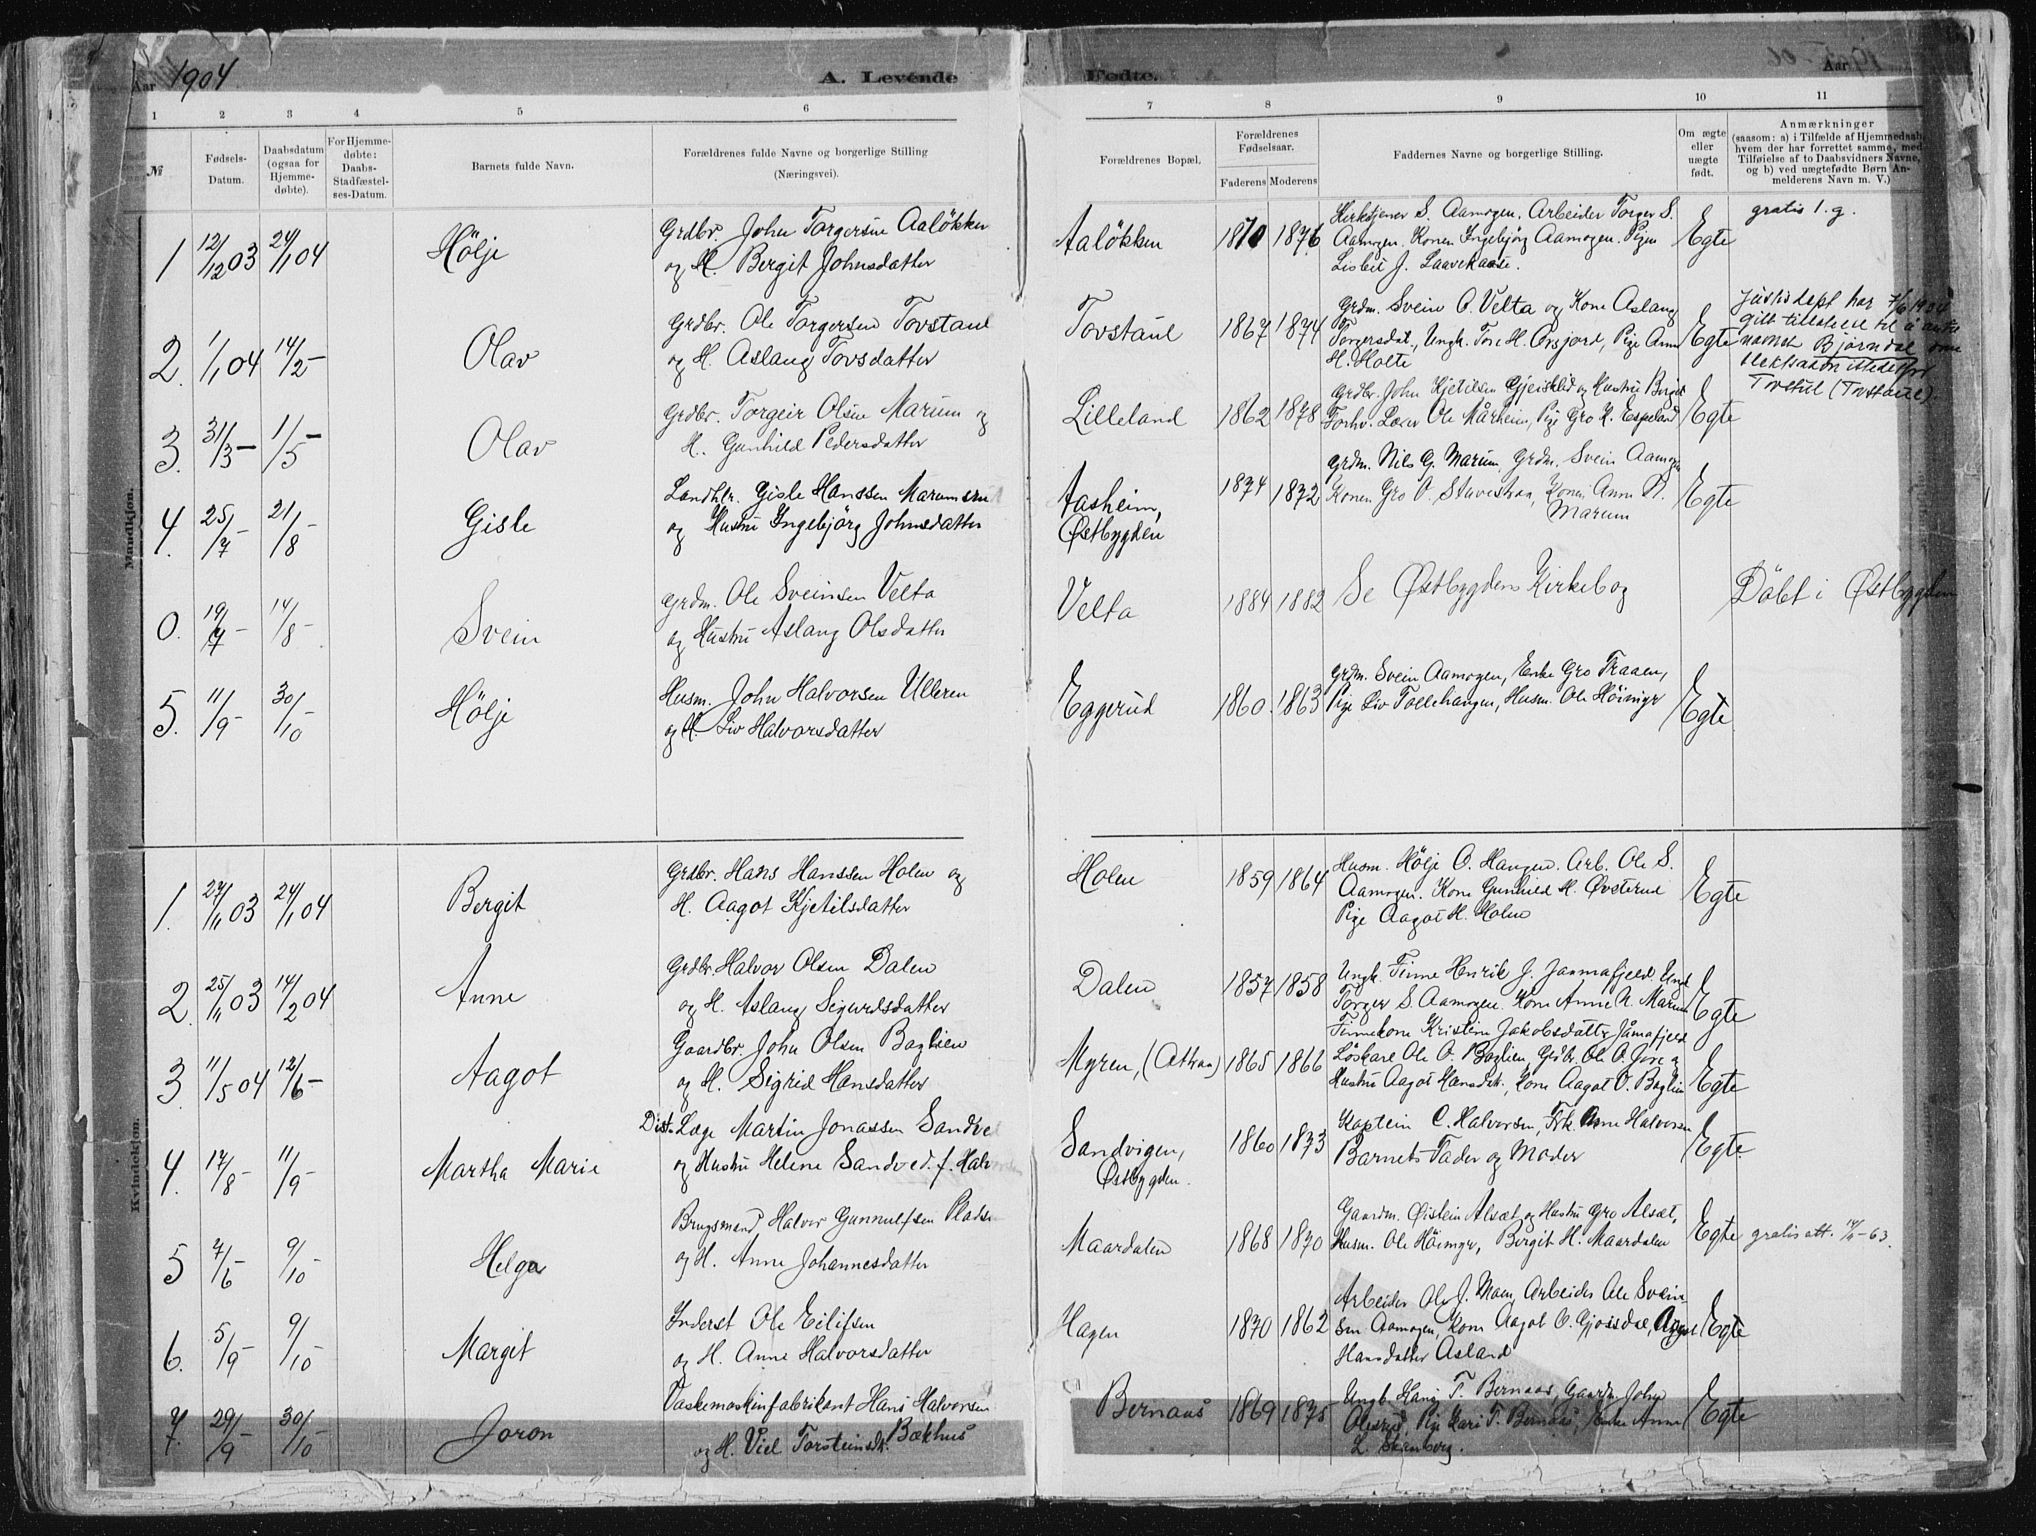 Aar 1904
A. Levende
Fødte.
Aar
1 2 3 4 5 6 7 8 9 10 11
№
Fødsels-
Datum.
Daabsdatum
(ogsaa for
Hjemme-
døbte).
For Hjemme-
døbte:
Daabs-
Stadfæstel-
ses-Datum.
Barnets fulde Navn.
Forældrenes fulde Navne og borgerlige Stilling
(Næringsvei).
Forældrenes Bopæl.
Forældrenes
Fødselsaar.
Faderens Moderens
Faddernes Navne og borgerlige Stilling.
Om ægte
eller
uægte
født.
Anmærkninger
(saasom: a) i Tilfælde af Hjemmedaab,
hvem der har forrettet samme, med
Tilføielse af to Daabsvidners Navne,
og b) ved uægtefødte Børn An-
melderens Navn m. V.)
Mandkjøn.
1 12/12 03 24/1 04 Hölje
Grdbr. John Torgersen Aalökken
og H. Bergit Johnsdatter
Aalökken 1870 1876
Kirketjener S. Aamogen. Arbeider Torger S.
Aamogen. Konen Ingebjörg Aamogen. Pigen
Lisbet J.
Egte
gratis 1. g.
2. 1/1 04 14/2 – Olav
Grdbr. Ole Torgersen Tovstaul
og H. Aslaug Tovsdatter
Tovstaul 1867 1874
Grdm. Svein O. Velta og Kone Aslaug
Torgersdat., Ungk. Tore H. Orsjord, Pige Anne
H. Holte
Egte
Justisdept har 7/6 1904
gitt tillatelse til å anta
namnet Bjørndal som
slektsnavn istedetfor
Tovstul (Tovstaul).
3. 31/3 – 1/5 – Olav
Grdbr. Torgeir Olsen Marum og
H. Gunhild Pedersdatter
Lilleland 1862 1878
Grdbr. John Kjetilsen Gjeisklid og Hustru Bergit
Forhv. Lærer Ole Mårheim, Pige Gro K. Espeland
Egte
4. 25/7 – 21/8 – Gisle
Landhlr. Gisle Hanssen Marumsrud
og Hustru Ingebjörg Johnsdatter
Aasheim,
Østbygden
1874 1872
Grdm. Nils G. Marum, Grdm. Svein Aamogen
Konen Gro O. Stavestraa, Konen Anne N.
Marum
Egte
0. 19/7 – 14/8 – Svein
Grdm. Ole Sveinsen Velta
og Hustru Aslaug Olsdatter
Velta 1884 1882
Se Østbygdens Kirkebog
Döbt i Østbygden
5. 11/9 – 30/10 – Hölje
Husm. John Halvorsen Ulleren
og H. Liv Halvorsdatter
Eggerud 1860 1863
Grdm. Svein Aamogen, Enke Gro Traaen,
Pige Liv Tollehaugen, Husm. Ole Höimyr
Egte
Kvindekjøn.
1. 27/11 03 24/1 04 Bergit
Grdbr. Hans Hanssen Holen og
H. Aagot Kjetilsdatter
Holen 1859 1864
Husm. Hölje O. Haugen. Arb. Ole S.
Aamogen. Kone Gunhild H. Øvsterud
Pige Aagot H. Holen
Egte
2. 25/11 03 14/2 04 Anne
Grdbr. Halvor Olsen Dalen
og H. Aslaug Sigurdsdatter
Dalen 1857 1858
Ungk. Finne Henrik J. Jammafjeld Ungk
Torger S. Aamogen Kone Anne N. Marum
Finnekone Kristine Jakobsdatter Jåmafjeld
Egte
3. 11/5 04 12/6 – Aagot
Gaardbr. John Olsen Baglien
og H. Sigrid Hansdatter
Myren, (Atraa) 1865 1866
Löskare Ole O. Baglien, Grdbr. Ole O. Jore og
Hustru Aagot Hansdtr. Kone Aagot O. Baglien
Egte
4. 17/8 – 11/9 – Martha Marie
Dist. Læge Martin Jonassen Sandved
og Hustru Helene Sandved f. Halvorsen
Sandvigen,
Østbygden.
1860 1873
Kaptein C. Halvorsen, Frk. Anne Halvorsen
Barnets Fader og Moder
Egte
5 7/6 – 9/10 – Helga
Brugsmand Halvor Gunnulfsen Pladsen
og H. Anne Johannesdatter
Maardalen 1868 1870
Gaardm. Øistein Alsæt og Hustru Gro Alsæt,
Husm. Ole Höimyr, Bergit H. Maardalen
Egte
gratis att. 14/11–63.
6. 5/9 – 9/10 – Margit
Inderst Ole Eilifsen
og H. Anne Halvorsdatter
Hagen 1870 1862
Arbeider Ole J. Moen, Arbeider Ole Svein-
sen Aamogen, Kone Aagot O. Gjosdal, Aagot
Hansdatter Åsland
Egte
7. 29/9 – 30/10 – Joron
Vaskemaskinfabrikant Hans Halvorsen
og H. Viel Torsteinsdt. Bækhus
Bernaas 1869 1875
Ungk. Hans T. Bernaas, Gaardm. John
Olsrud, Pige Kari T. Bernaas, Enke Anne
L. Skinberg.
Egte